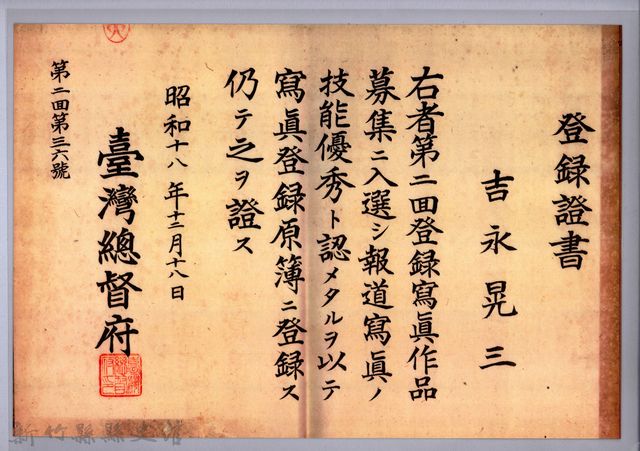 登録證書
吉永晃三
右者第二回登録寫眞作品
募集ニ入選シ報道寫眞ノ
技能優秀ト認メタルヲ以テ
寫眞登録原簿ニ登録ス
仍テ之ヲ證ス
昭和十八年十二月十八日
臺灣總督府
第二回第三六號
新竹縣縣史館